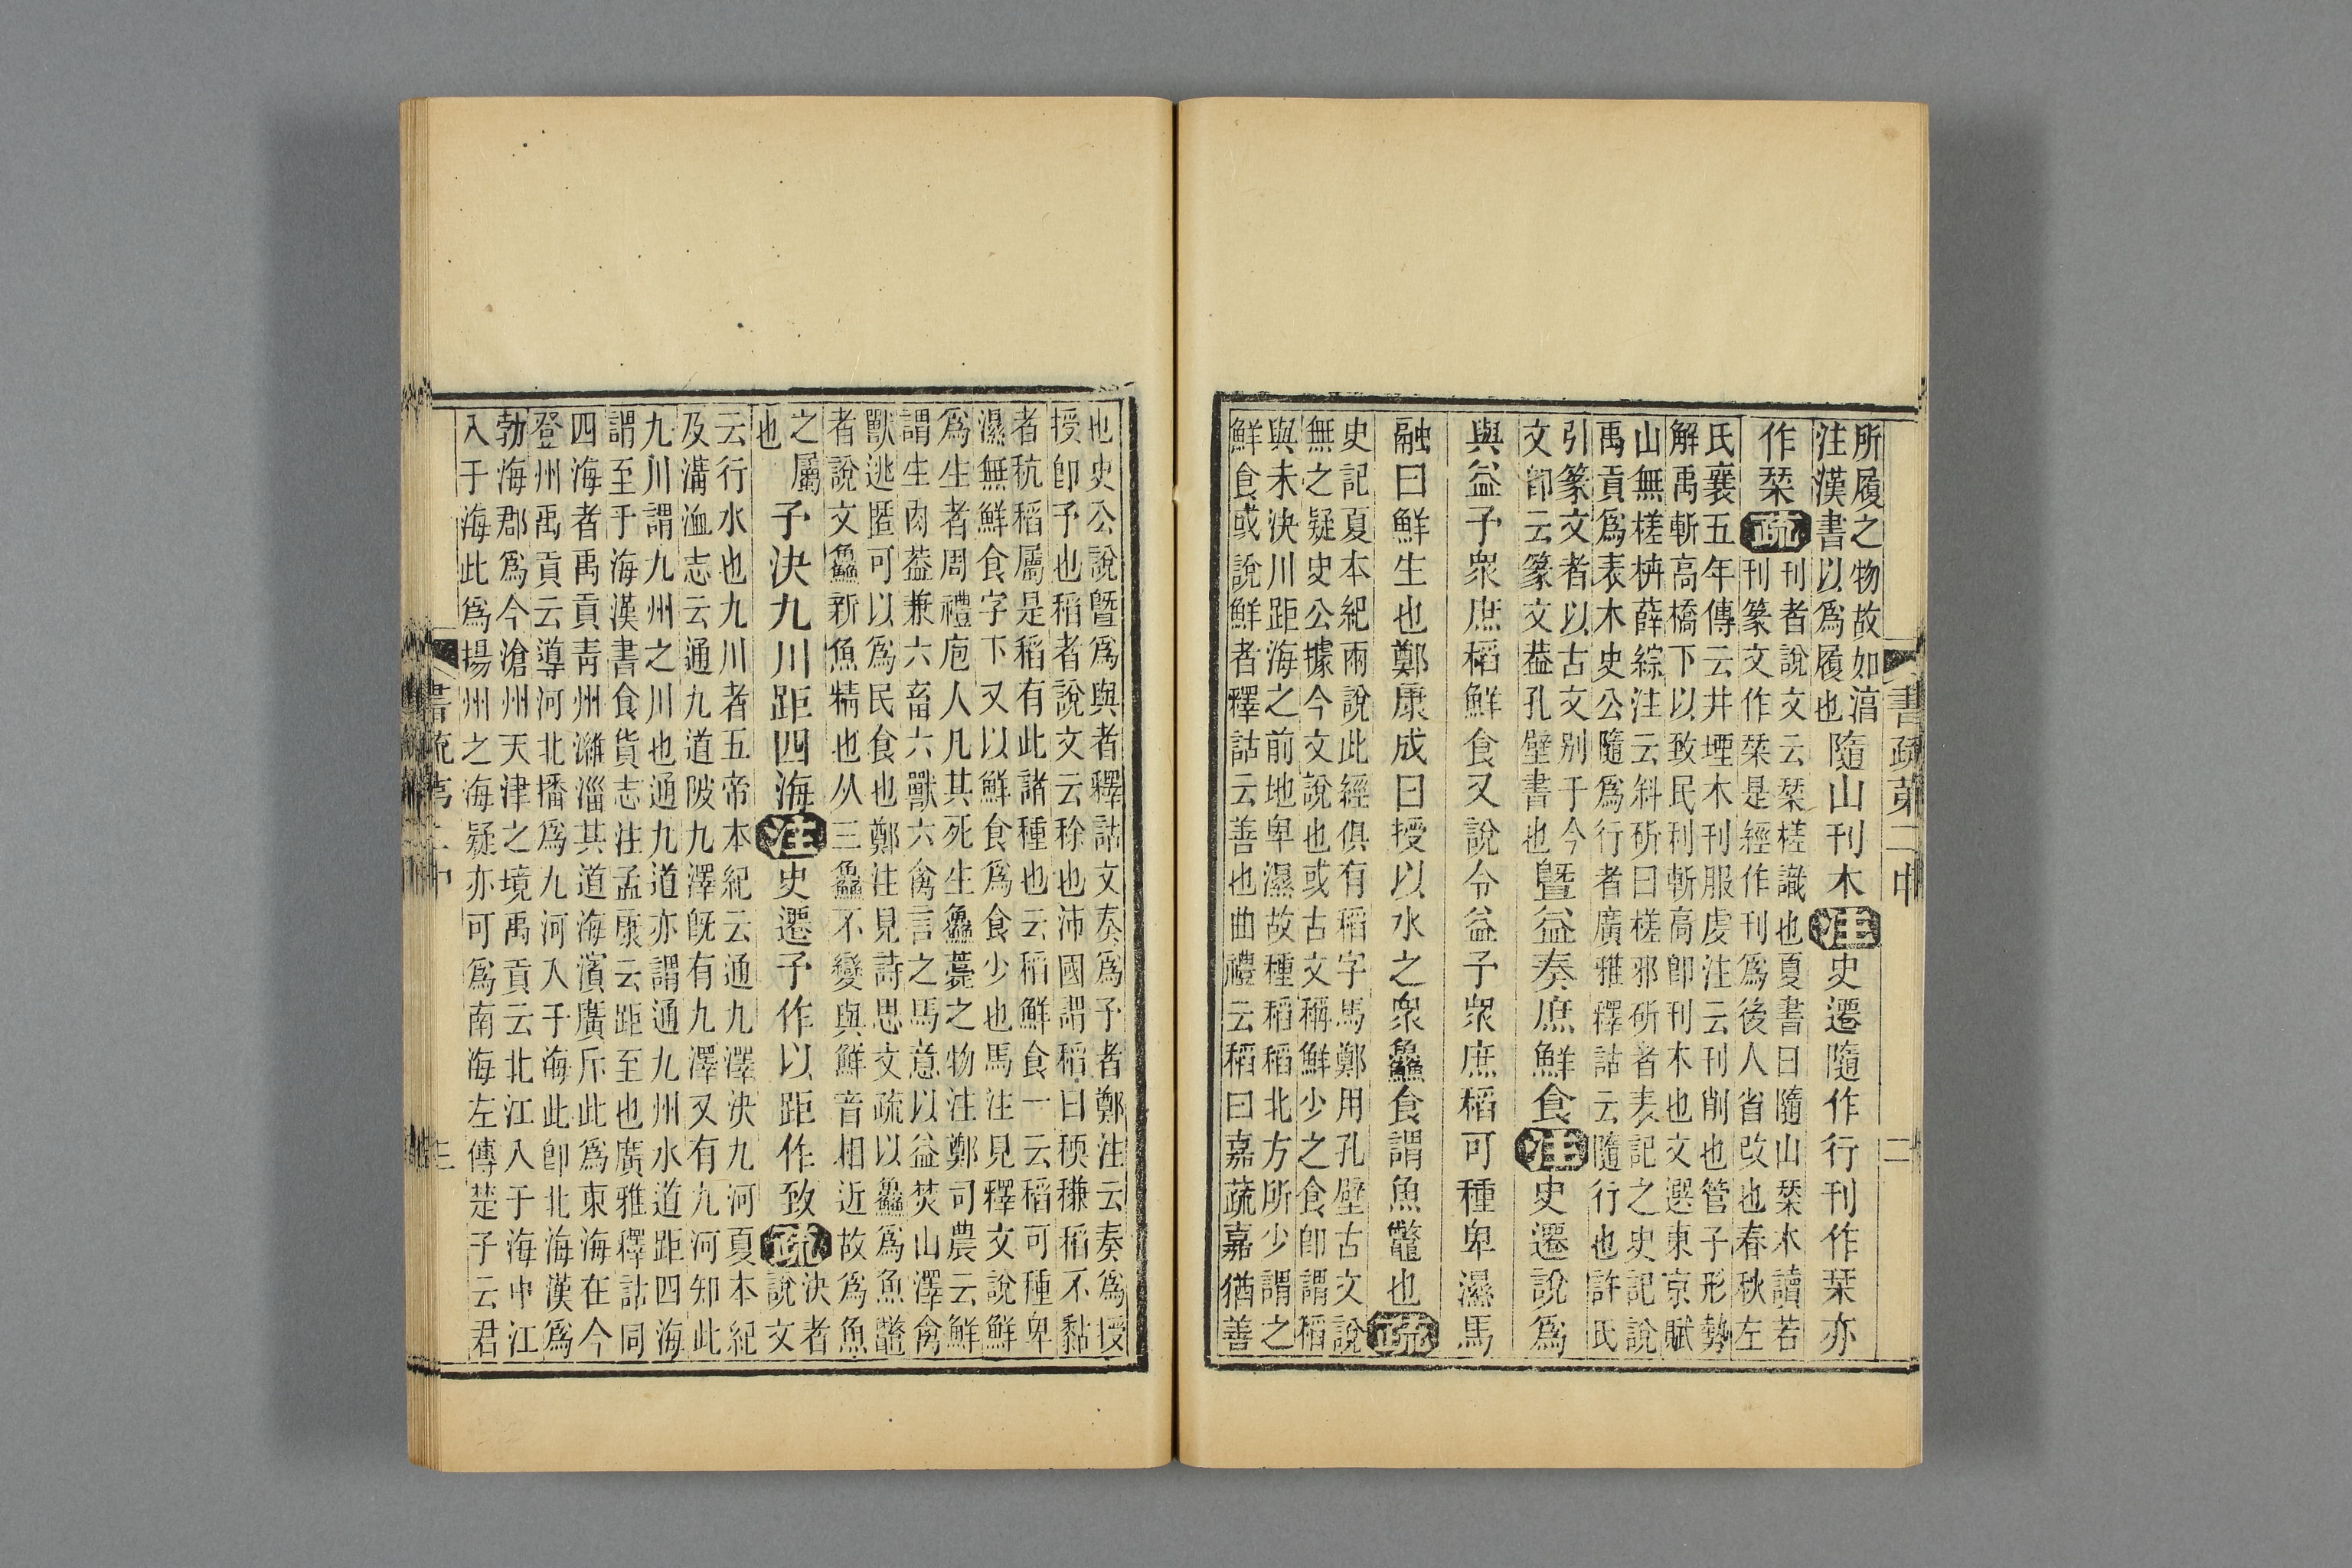 書疏弟二中 二
所履之物故如湻
注漢書以爲履也
隨山刊木注史遷隨作行刊作栞亦
作栞疏
刊者說文云栞槎識也夏書曰隨山栞木讀若
刊篆文作栞是經作刊爲後人省改也春秋左
氏襄五年傳云井堙木刊服虔注云刊削也管子形勢
解禹斬高橋下以致民利斬高卽刊木也文選東京賦
山無槎枿薛綜注云斜斫曰槎邪斫者表記之史記說
禹貢爲表木史公隨爲行者廣雅釋詁云隨行也許氏
引篆文者以古文别于今
文卽云篆文葢孔壁書也
暨益奏庶鮮食注史遷說爲
與益予衆庶稻鮮食又說令益予衆庶稻可種卑濕馬
融曰鮮生也鄭康成曰授以水之衆鱻食謂魚鼈也疏
史記夏本紀兩說此經俱有稻字馬鄭用孔壁古文說
無之疑史公據今文說也或古文稱鮮少之食卽謂稻
與未決川距海之前地卑濕故種稻稻北方所少謂之
鮮食或說鮮者釋詁云善也曲禮云稻曰嘉蔬嘉猶善
也史公說暨爲與者釋詁文奏爲予者鄭注云奏爲授
授卽予也稻者說文云稌也沛國謂稻曰稬稴稻不黏
者秔稻屬是稻有此諸種也云稻鮮食一云稻可種卑
濕無鮮食字下又以鮮食爲食少也馬注見釋文說鮮
爲生者周禮庖人凡其死生鱻薧之物注鄭司農云鮮
謂生肉葢兼六畜六獸六禽言之馬意以益焚山澤禽
獸逃匿可以爲民食也鄭注見詩思文疏以鱻爲魚鼈
者說文鱻新魚精也从三鱻不變與鮮音相近故爲魚
之屬
也
予決九川距四海注史遷予作以距作致疏
決者
說文
云行水也九川者五帝本紀云通九澤決九河夏本紀
及溝洫志云通九道陂九澤旣有九澤又有九河知此
九川謂九州之川也通九道亦謂通九州水道距四海
謂至于海漢書食貨志注孟康云距至也廣雅釋詁同
四海者禹貢青州濰淄其道海濱廣斥此爲東海在今
登州禹貢云導河北播爲九河入于海此卽北海漢爲
勃海郡爲今滄州天津之境禹貢云北江入于海中江
入于海此爲揚州之海疑亦可爲南海左傳楚子云君